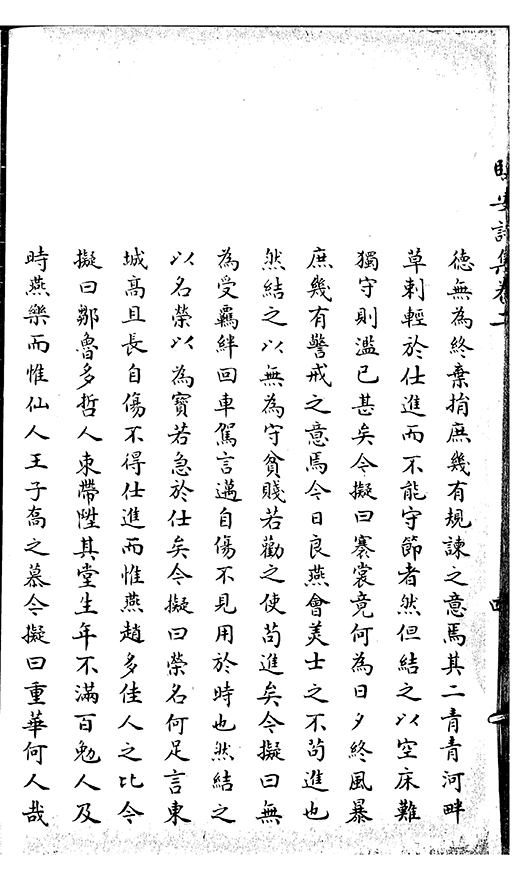 照安詩集卷二
德無為終棄捐庶幾有規諫之意焉其二青青河畔
草刺輕於仕進而不能守節者然但結之以空床難
獨守則濫已甚矣今擬曰褰裳竟何為日夕終風暴
庶幾有警戒之意焉今日良燕會美士之不苟進也
然結之以無為守貧賤若勸之使苟進矣今擬曰無
為受羈絆回車駕言邁自傷不見用於時也然結之
以名榮以為寶若急於仕矣今擬曰榮名何足言東
城高且長自傷不得仕進而惟燕趙多佳人之比今
擬曰鄒魯多哲人束帶陞其堂生年不滿百勉人及
時燕樂而惟仙人王子喬之慕今擬曰重華何人哉